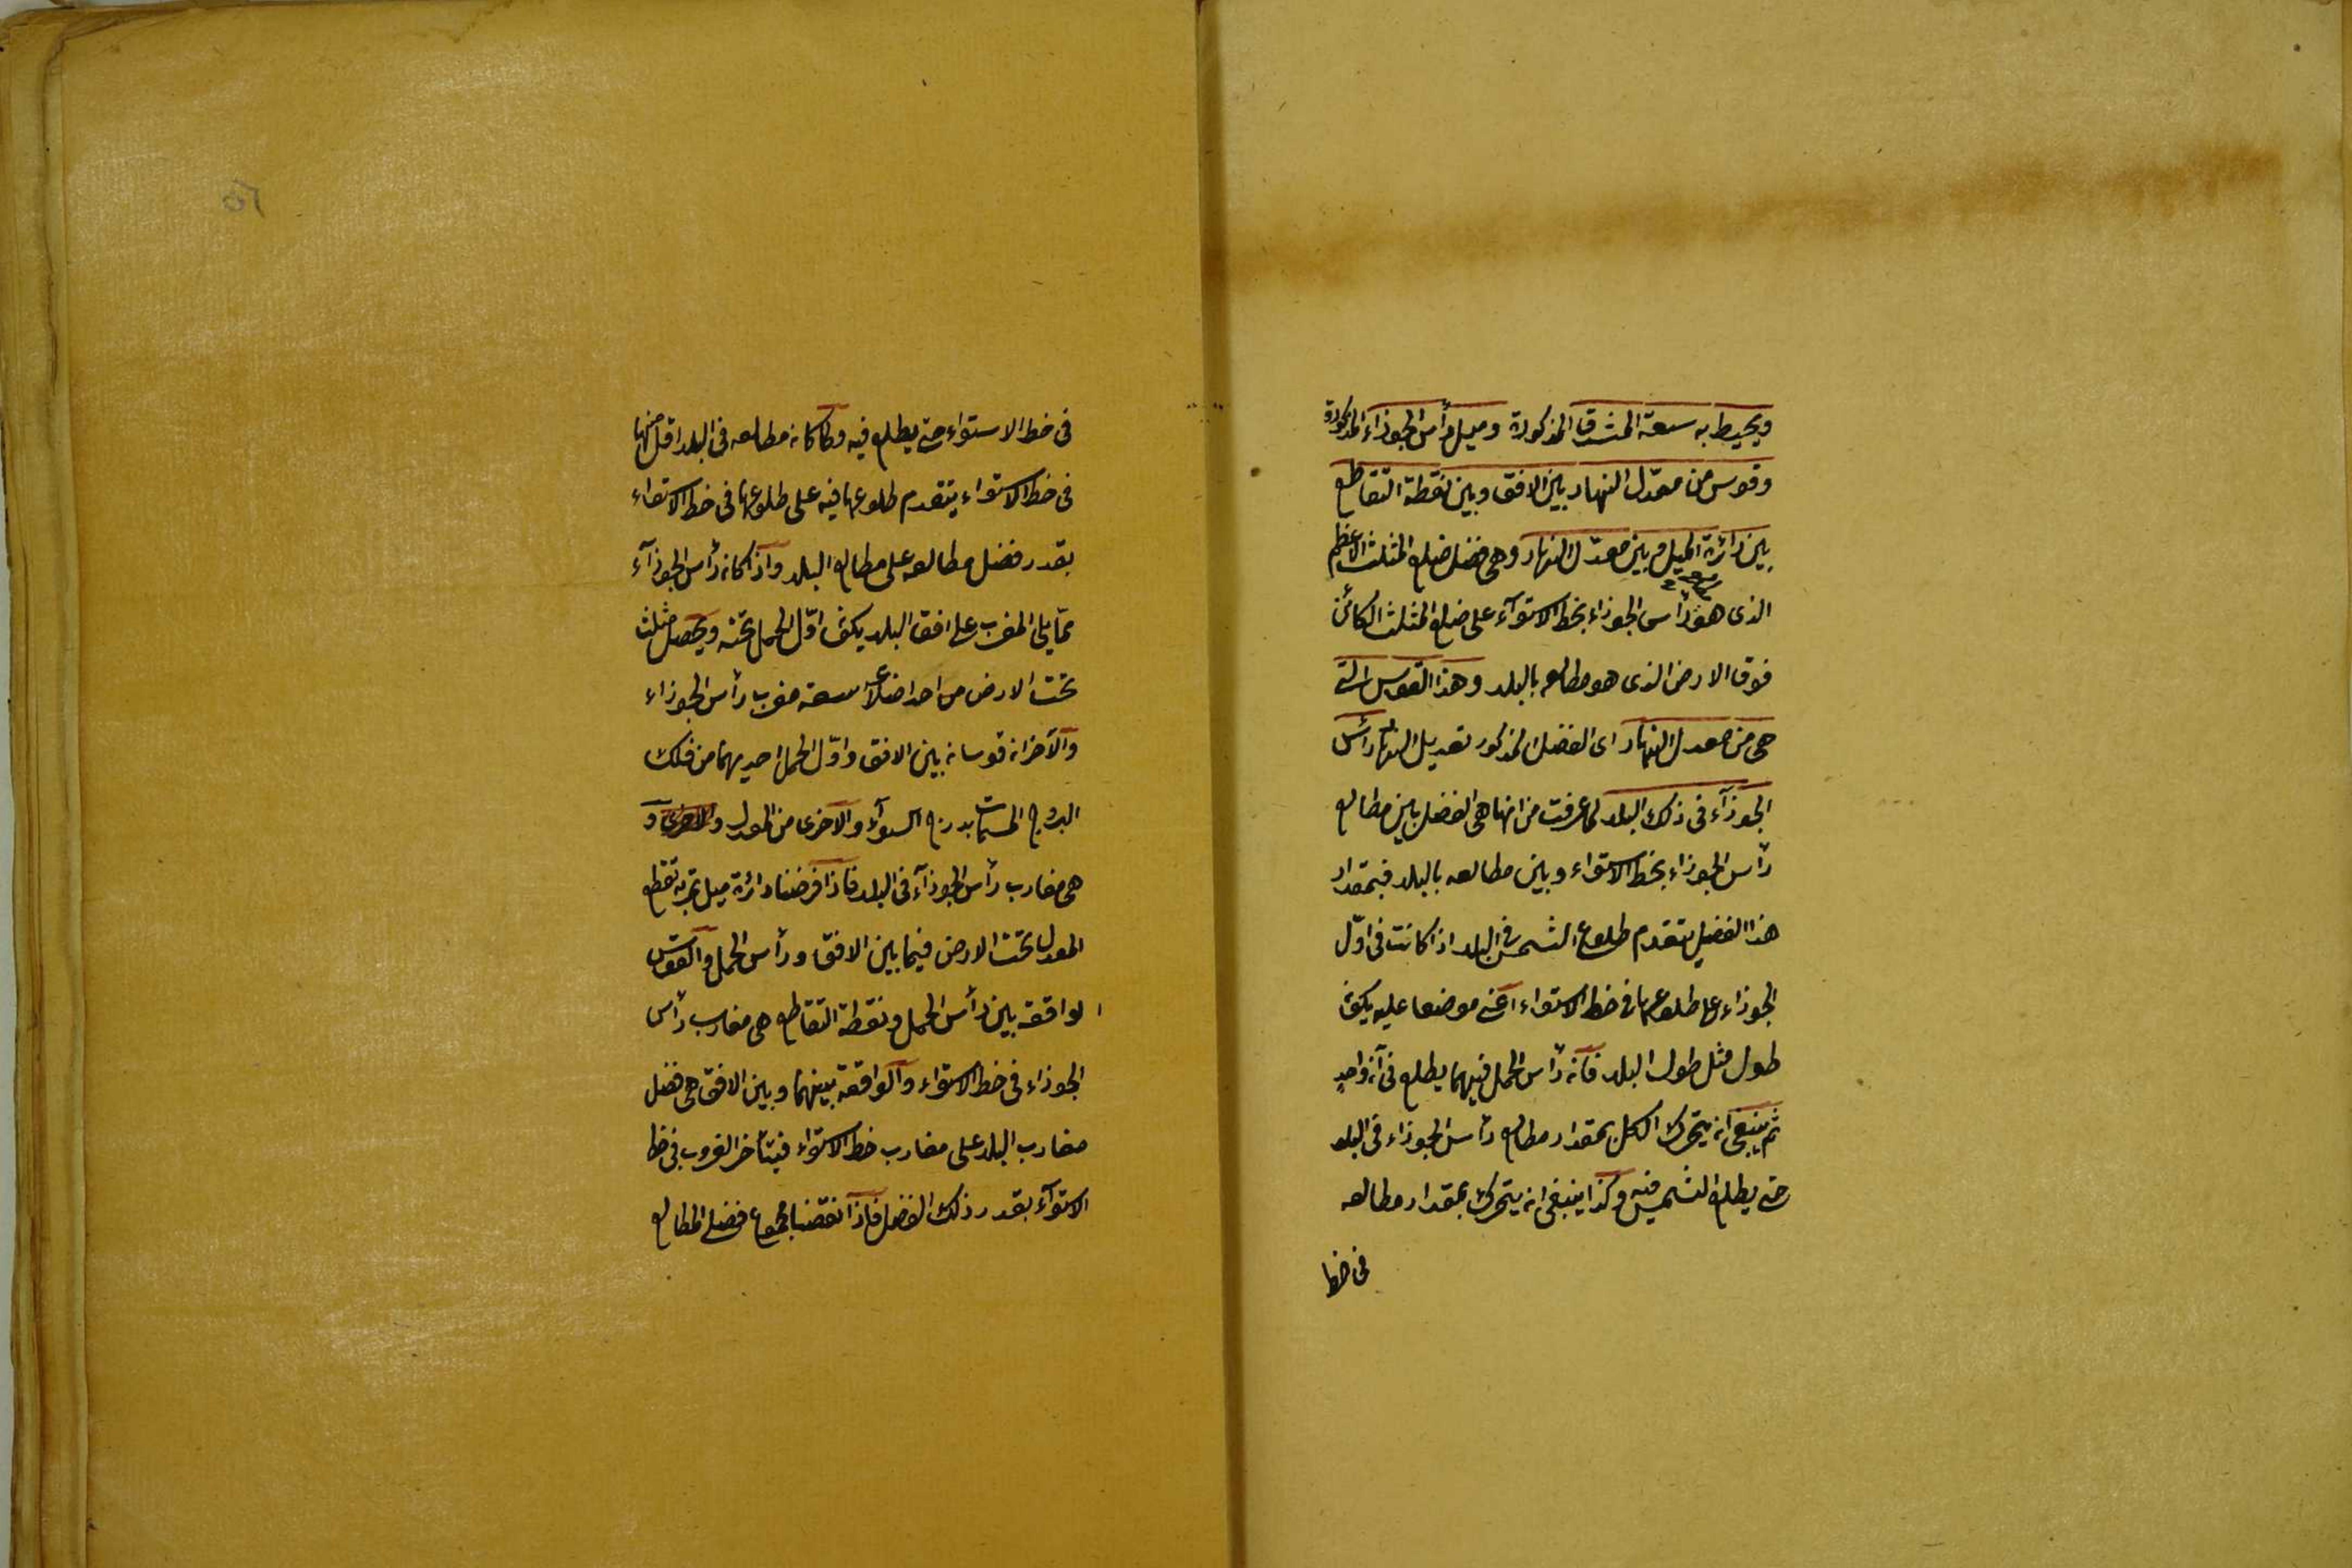 ويحيط به سعة المشرق المذكورة وميل رأس الجوزاء المذكورة
وقوس من معدّل النهار بين الافق وبين نقطة التقاطع
بين دائرة الميل وبين معدّل النهار وهى فضل ضلع المثلث الاعظم
الذى هو رأس الجوزاء بخط الاستوآء على ضلع المثلث الكائن
فوق الارض الذى هو مطالعه بالبلد وهذا القوس التى
هى من معدل النهار اى الفضل المذكور تعديل النهار رأس
الجوزآء فى ذلك البلد لما عرفت من انها هى الفضل بين مطالع
رأس الجوزاء بخط الاستواء وبين مطالعه بالبلد فبمقدار
هذا الفضل يتقدم طلوع الشمس فى البلد اذا كانت فى اوّل
الجوزاء على طلوعها فى خط الاستواء اعنى موضعا عليه يكون
طول مثل طول البلد فانه رأس الحمل فيهما يطلع فى آن واحدٍ
ثم ينبغى ان يتحرك الكل بمقدار مطالع رأس الجوزاء فى البلد
حتى يطلع الشمس فيه وكذا ينبغى ان يتحرك بمقدار مطالعه
فى خط
فى خط الاستواء حتى يطلع فيه ولما كان مطالعه فى البلد اقل منها
فى خط الاستواء يتقدم طلوعها فيه على طلوعها فى خط الاستواء
بقدر فضل مطالعه على مطالع البلد واذا كان رأس الجوزآء
ممّا يلى المغرب على افق البلد يكون اوّل الحمل تحته ويحصل مثلث
تحت الارض من احد اضلاعه سعة مغرب رأس الجوزاء
والآخران قوسان بين الافق واوّل الحمل احديهما من فلك
البروج المسمات بدرج السوآء والآخرى من المعدل و
هى مغارب رأس الجوزآء فى البلد فاذا فرضنا دائرة ميل تمر به تقطع
المعدل تحت الارض فيما بين الافق ورأس الحمل والقوس
الواقعة بين رأس الحمل ونقطة التقاطع هى مغارب رأس
الجوزاء فى خط الاستواء والواقعة بينهما وبين الافق هى فضل
مغارب البلد على مغارب خط الاستواء فيتأخر الغروب فى خط
الاستوآء بقدر ذلك الفضل فاذا نقصنا مجموع فضلى المطالع